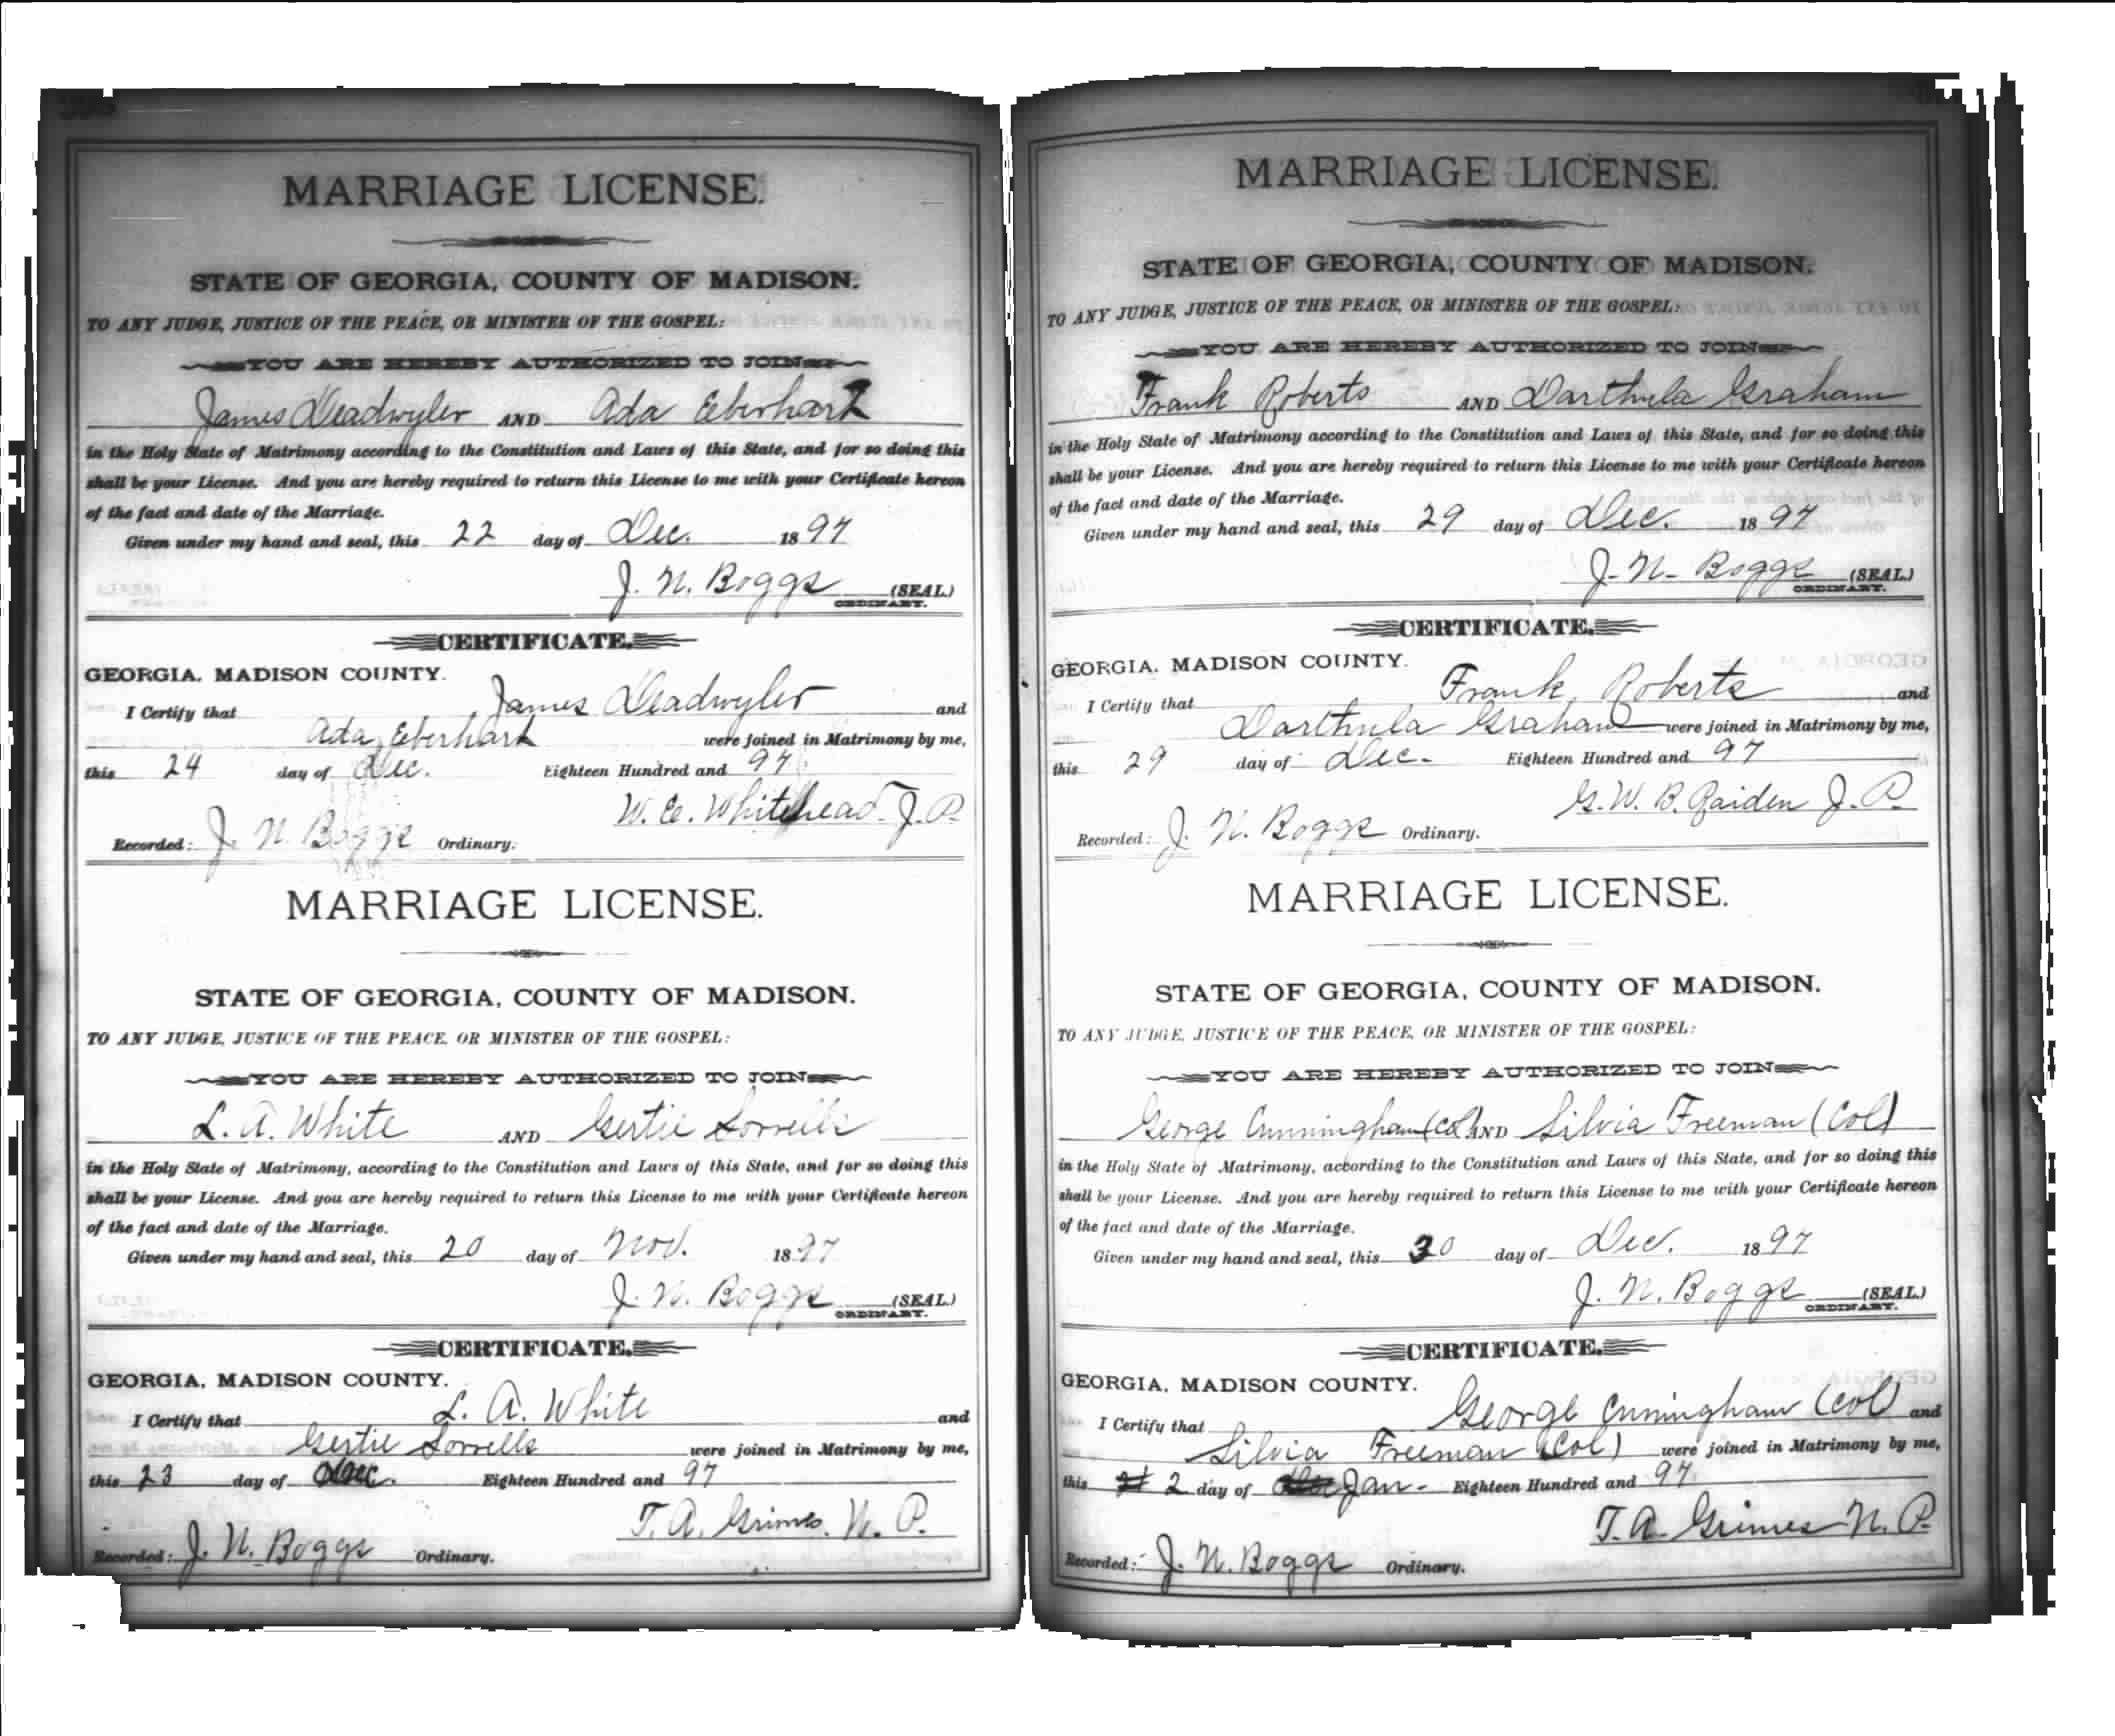 MARRIAGE LICENSE.
STATE OF GEORGIA, COUNTY OF MADISON.
TO ANY JUDGE, JUSTICE OF THE PEACE, OR MINISTER OF THE GOSPEL:
YOU ARE HEREBY AUTHORIZED TO JOIN
James Deadwyler AND Ada Eberhart
in the Holy State of Matrimony according to the Constitution and Laws of this State, and for so doing this
shall be your License. And you are hereby required to return this License to me with your Certificate hereon
of the fact and date of the Marriage.
Given under my hand and seal, this 22 day of Dec. 1897
J. N. Boggs (SEAL.)
ORDINARY.
CERTIFICATE.
GEORGIA, MADISON COUNTY.
I Certify that James Deadwyler and
Ada Eberhart were joined in Matrimony by me,
this 24 day of Dec. Eighteen Hundred and 97
W. C. Whitehead J. P.
Recorded: J. N. Boggs Ordinary.
MARRIAGE LICENSE.
STATE OF GEORGIA, COUNTY OF MADISON.
TO ANY JUDGE, JUSTICE OF THE PEACE, OR MINISTER OF THE GOSPEL:
YOU ARE HEREBY AUTHORIZED TO JOIN
L. A. White AND Gertie Sorrells
in the Holy State of Matrimony, according to the Constitution and Laws of this State, and for so doing this
shall be your License. And you are hereby required to return this License to me with your Certificate hereon
of the fact and date of the Marriage.
Given under my hand and seal, this 20 day of Nov. 1897
J. N. Boggs (SEAL.)
ORDINARY.
CERTIFICATE.
GEORGIA, MADISON COUNTY.
I Certify that L. A. White and
Gertie Sorrells were joined in Matrimony by me,
this 23 day of Dec. Eighteen Hundred and 97
T. A. Grimes. N. P.
Recorded: J. N. Boggs Ordinary.
MARRIAGE LICENSE.
STATE OF GEORGIA, COUNTY OF MADISON.
TO ANY JUDGE, JUSTICE OF THE PEACE, OR MINISTER OF THE GOSPEL:
YOU ARE HEREBY AUTHORIZED TO JOIN
Frank Roberts AND Darthula Graham
in the Holy State of Matrimony according to the Constitution and Laws of this State, and for so doing this
shall be your License. And you are hereby required to return this License to me with your Certificate hereon
of the fact and date of the Marriage.
Given under my hand and seal, this 29 day of Dec. 1897
J. N. Boggs (SEAL.)
ORDINARY.
CERTIFICATE.
GEORGIA, MADISON COUNTY.
I Certify that Frank Roberts and
Darthula Graham were joined in Matrimony by me,
this 29 day of Dec. Eighteen Hundred and 97
G. W. B. Raiden J. P.
Recorded: J. N. Boggs Ordinary.
MARRIAGE LICENSE.
STATE OF GEORGIA, COUNTY OF MADISON.
TO ANY JUDGE, JUSTICE OF THE PEACE, OR MINISTER OF THE GOSPEL:
YOU ARE HEREBY AUTHORIZED TO JOIN
George Cunningham (Col) AND Silvia Freeman (Col)
in the Holy State of Matrimony, according to the Constitution and Laws of this State, and for so doing this
shall be your License. And you are hereby required to return this License to me with your Certificate hereon
of the fact and date of the Marriage.
Given under my hand and seal, this 30 day of Dec. 1897
J. N. Boggs (SEAL.)
ORDINARY.
CERTIFICATE.
GEORGIA, MADISON COUNTY.
I Certify that George Cuningham (Col) and
Silvia Freeman (Col) were joined in Matrimony by me,
this 2 day of Jan. Eighteen Hundred and 97
T. A. Grimes N. P.
Recorded: J. N. Boggs Ordinary.